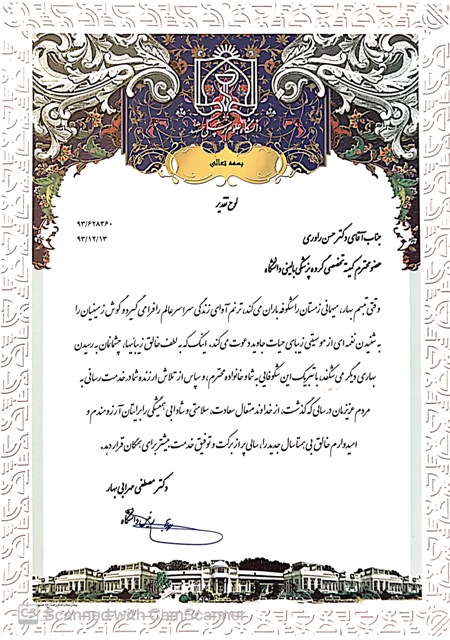 دانشگاه علوم پزشکی مشهد
بسمه تعالی
لوح تقدیر
۹۳/۶۲۸۴۶۰
۹۳/۱۲/۱۳
جناب آقای دکتر حسن راوری
عضو محترم کمیته تخصصی گروه پزشکی بالینی دانشگاه
وقتی تبسم بهار، میهمانی زمستان را شکوفه باران می کند، ترنم آوای زندگی سراسر عالم را فرا می گیرد و گوش زمینیان را
به شنیدن نغمه ای از موسیقی زیبای حیات جاوید دعوت می کند. اینک که به لطف خالق زیبائیها، چشمانمان به رسیدن
بهاری دیگر می شکفد، با تبریک این شکوفایی به شما و خانواده محترم، و سپاس از تلاش ارزنده شما در خدمت رسانی به
مردم عزیزمان در سالی که گذشت، از خداوند متعال سعادت، سلامتی و شادابی همیشگی را برایتان آرزومندم و
امیدوارم خالق بی همتا سال جدید را، سالی پر از برکت و توفیق خدمت بیشتر برای همگان قرار دهد.
دکتر مصطفی مهرابی بهار
رئیس دانشگاه
CS Scanned with CamScanner